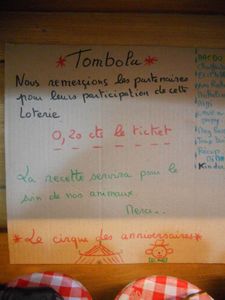 * Tombola *
Nous remerçions les partenaires
pour leurs participation de cette
Loterie.
0,20 cts le ticket
La recette servira pour le
soin de nos animaux.
Merci...
* Le cirque des anniversaires *